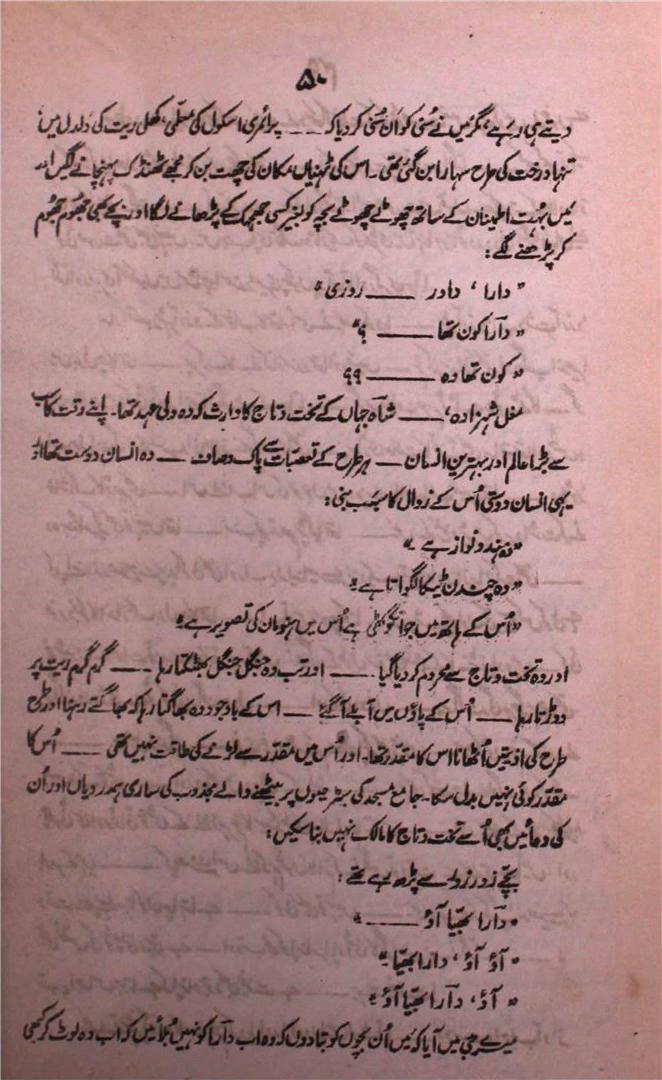 ۵۰
دیتے ہی رہے، مگر میں نے سُنی کو اَن سُنی کر دیا کہ ـــ پرائمری اسکول کی معلّمی، کھلی ریت کی دلدل میں
تنہا درخت کی طرح سہارا بن گئی تھی۔ اس کی ٹہنیاں مکان کی چھت بن کر مجھے ٹھنڈک پہنچانے لگیں اور
میں بہُت اطمینان کے ساتھ چھوٹے چھوٹے بچہ کو بغیر کسی جھجھک کے پڑھانے لگا اور بچے بھی جھُوم جھُوم
کر پڑھنے لگے:
"دارا، دادر ـــــ روزی"
"دآرا کون تھا ـــــ ؟"
"کون تھا وہ ـــــ ؟؟
مغل شہزادہ، ـــ شاہ جہاں کے تخت و تاج کا وارث کہ وہ ولی عہد تھا۔ اپنے وقت کا سب
سے بڑا عالم اور بہترین انسان ـــ ہر طرح کے تعصبّات سے پاک و صاف ـــ وہ انسان دوست تھا اور
یہی انسان دوستی اُس کے زوال کا سبب بنی:
"وہ ہندو نواز ہے۔"
"وہ چندن ٹیکا لگواتا ہے۔"
"اُس کے ہاتھ میں جو انگوٹھی ہے اُس میں ہنومان کی تصویر ہے"
اور وہ تخت و تاج سے محروم کر دیا گیا ـــ اور تب وہ جنگل جنگل بھٹکتا رہا ـــ گرم گرم ریت پر
دوڑتا رہا ـــ اُس کے پاؤں میں آبلے آ گئے ـــ اس کے باوجود وہ بھاگتا رہا کہ بھاگتے رہنا اور طرح
طرح کی اذیتیں اُٹھانا اس کا مقدر تھا۔ اور اُس میں مقدّر سے لڑنے کی طاقت نہیں تھی ـــ اُس کا
مقدّر کوئی نہیں بدل سکا۔ جامع مسجد کی سیڑھیوں پر بیٹھنے والے مجذوب کی ساری ہمدردیاں اور اُن
کی دعائیں بھی اُسے تخت و تاج کا مالک نہیں بنا سکیں:
بچّے زور زور سے پڑھ رہے تھے:
"دآرا بھیّا آؤ ـــــ"
"آؤ آؤ، دارا بھیّا۔"
"آؤ، دآرا بھیّا آؤ"
میرے جی میں آیا کہ میں اُن بچّوں کو بتا دوں کہ وہ اب دآرا کو نہیں بُلائیں کہ اب وہ لوٹ کر کبھی